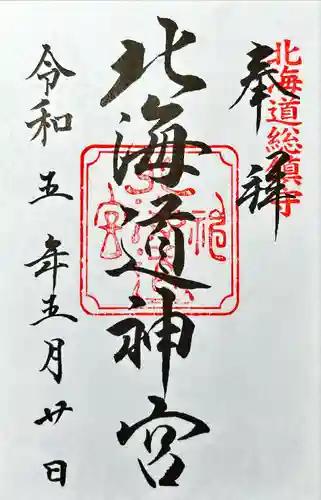 奉拝
北海道総鎮守
北海道神宮
令和五年五月廿日